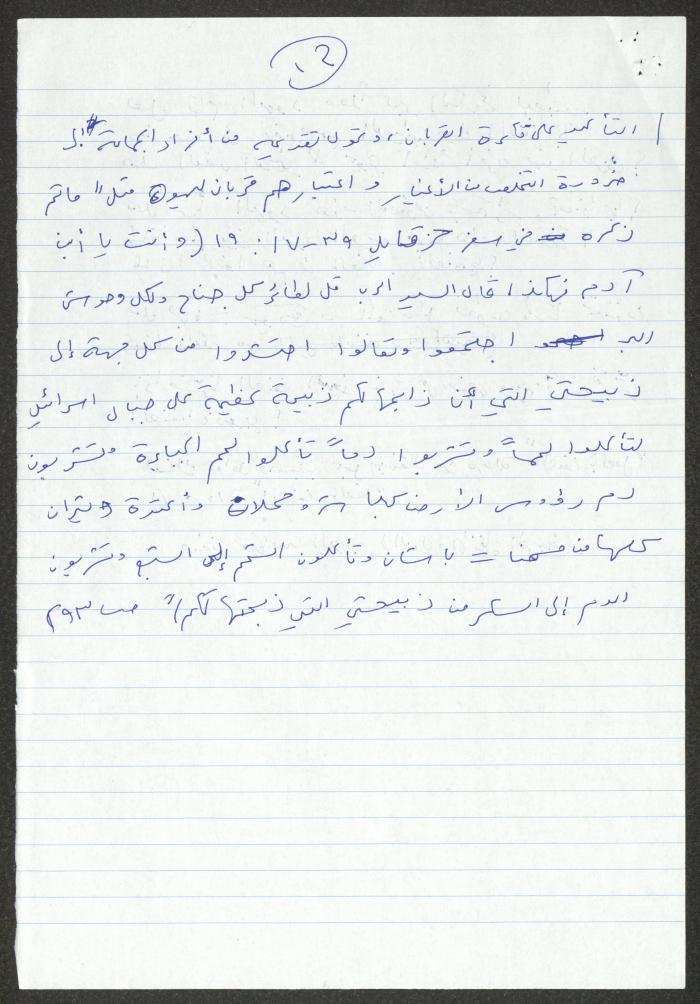 ١٢
التأكيد على فكرة القربان، وتحول تقديمه من أفراد الجماعة إلى
ضرورة التخلص من الأغيار واعتبارهم قربان ليهوه مثل " ما تم
ذكره في سفر حزقيال ٣٩ - ١٧ : ١٩ (وأنت يا أبن
آدم فهكذا قال السيد الرب قل لطائر كل جناح ولكل وحوش
البر اجتمعوا وتعالوا احتشدوا من كل جهة إلى
ذبيحتي التي أنا ذابحها لكم ذبيحة عظيمة على جبال اسرائيل
لتأكلوا لحماً وتشربوا دماً تأكلوا لحم الجبابرة وتشربون
دم رؤوس الأرض كباش وحملان وأعتدة وثيران
كلها من مسمنات باشان وتأكلون الشحم إلى الشبع وتشربون
الدم إلى السكر من ذبيحتي التي ذبحتها لكم)" صـ